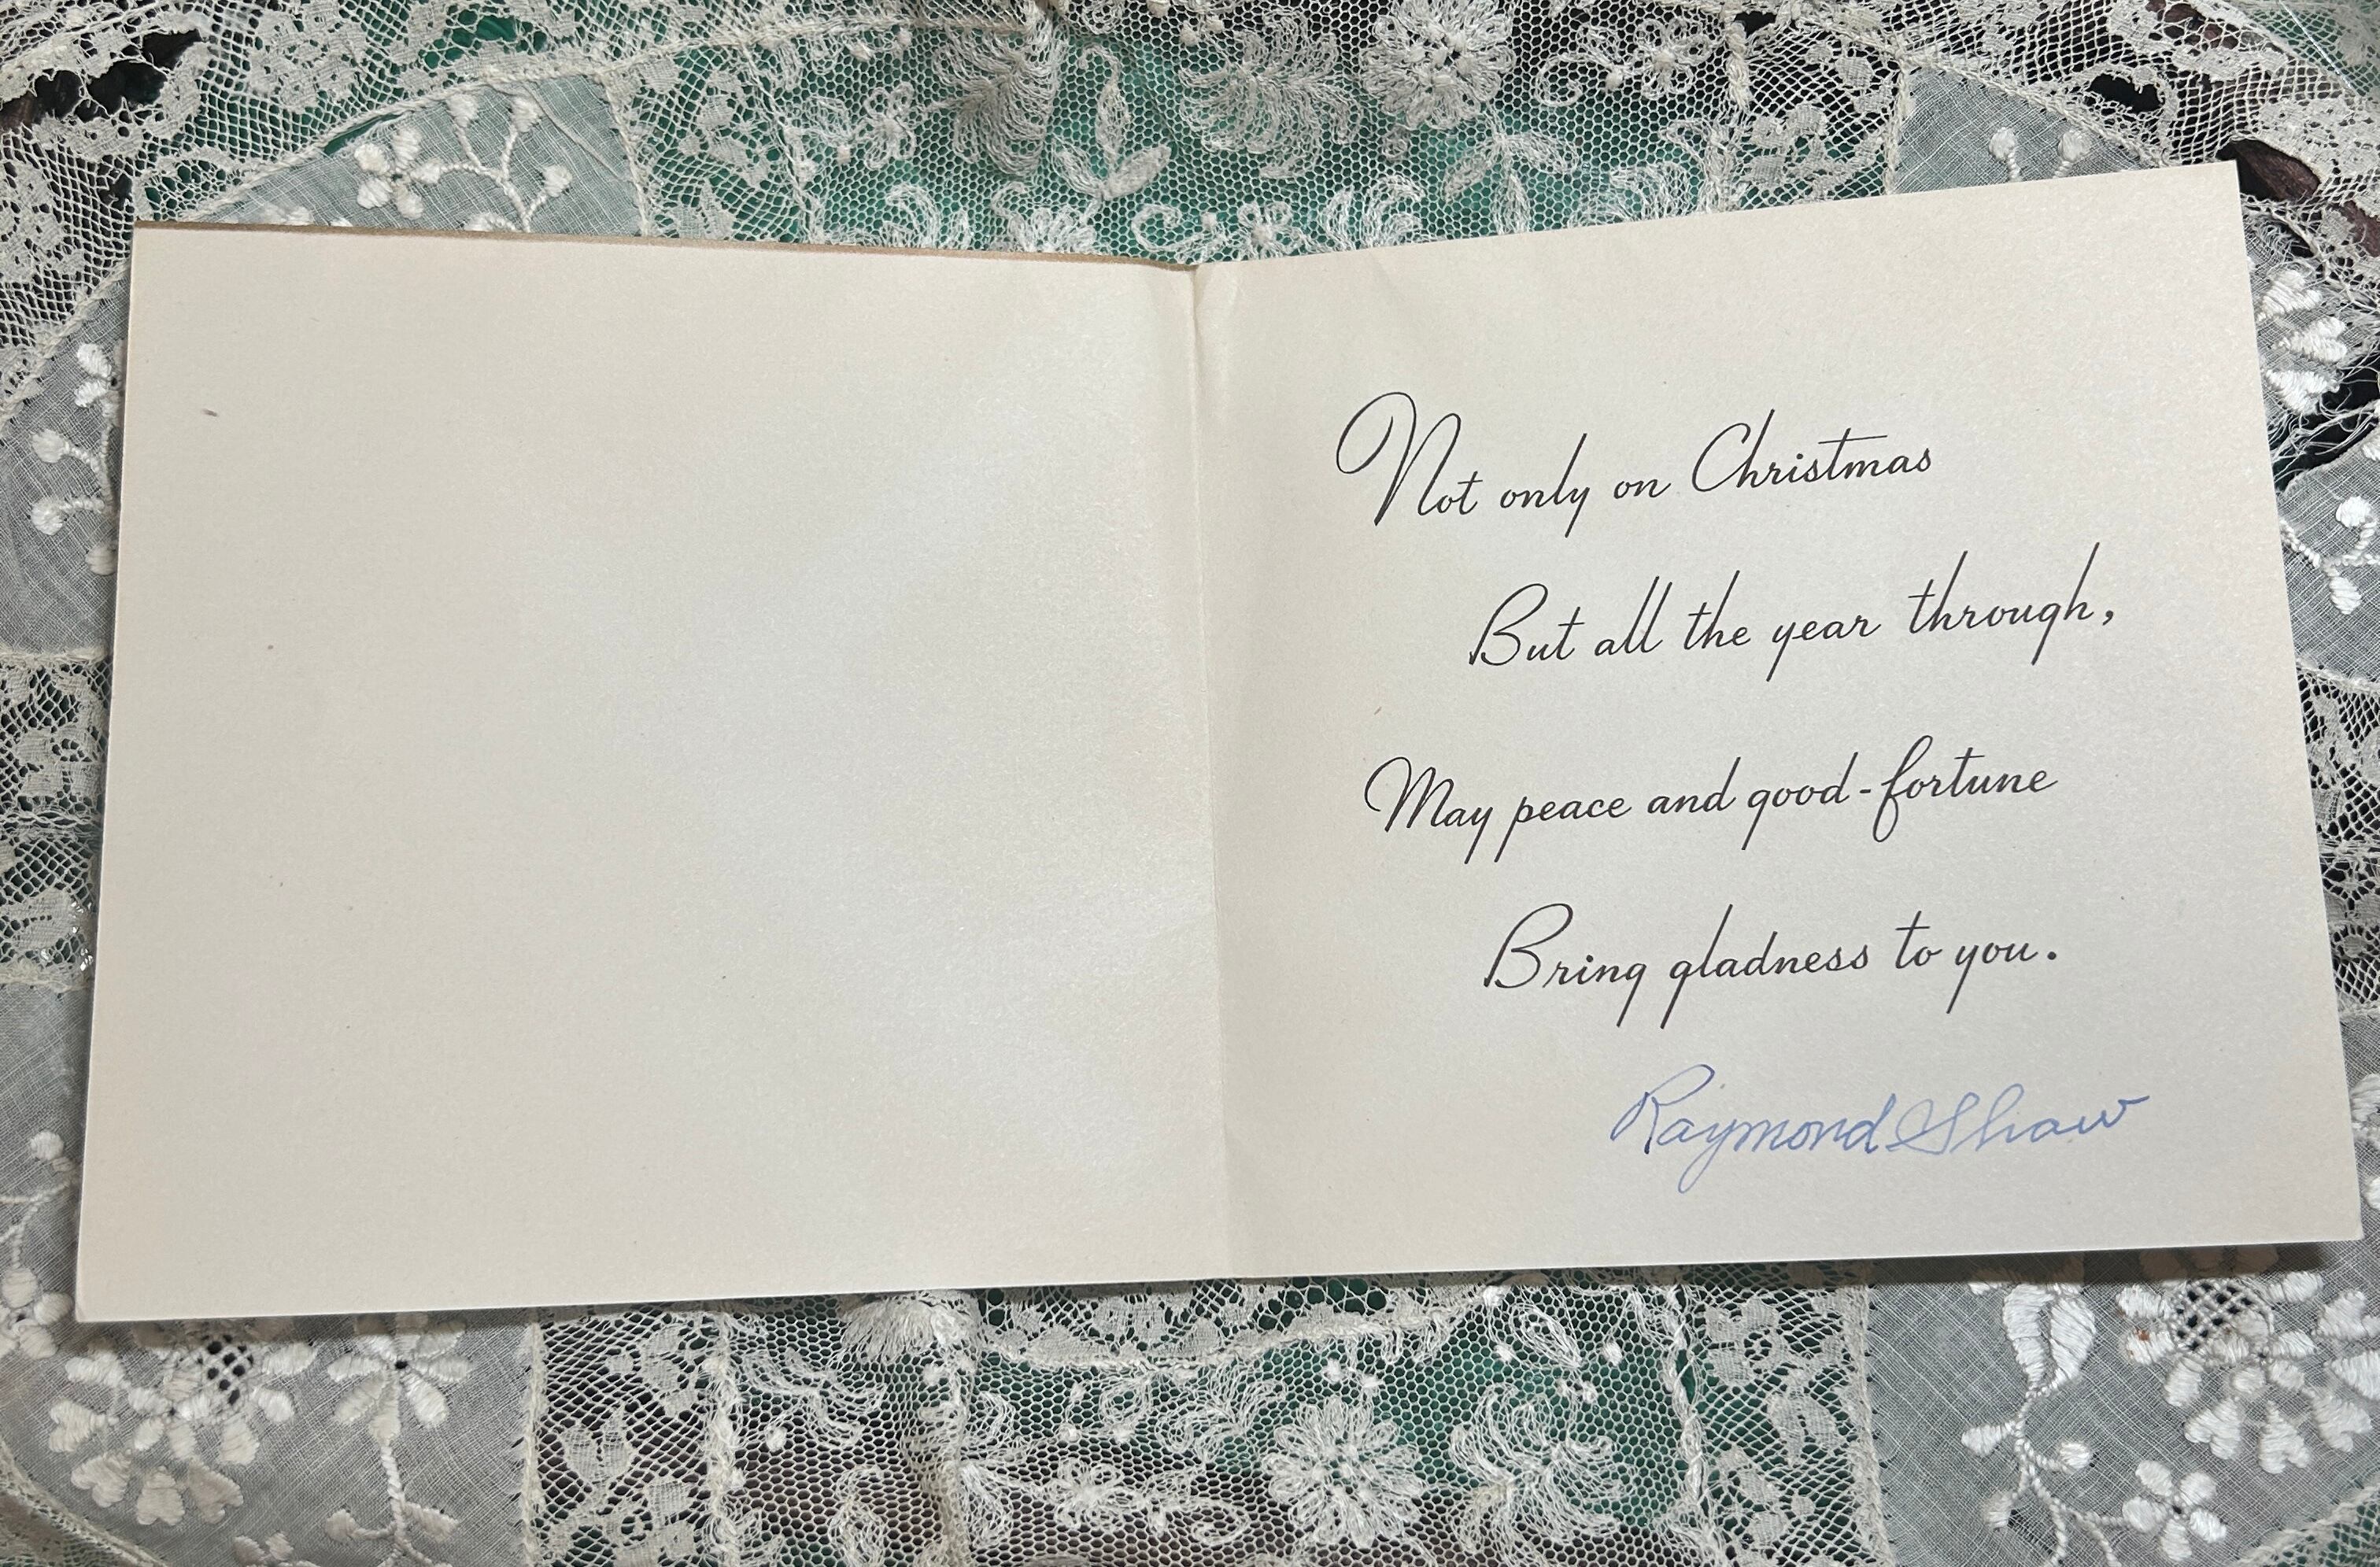 Not only on Christmas
But all the year through,
May peace and good-fortune
Bring gladness to you.
Raymond Shaw